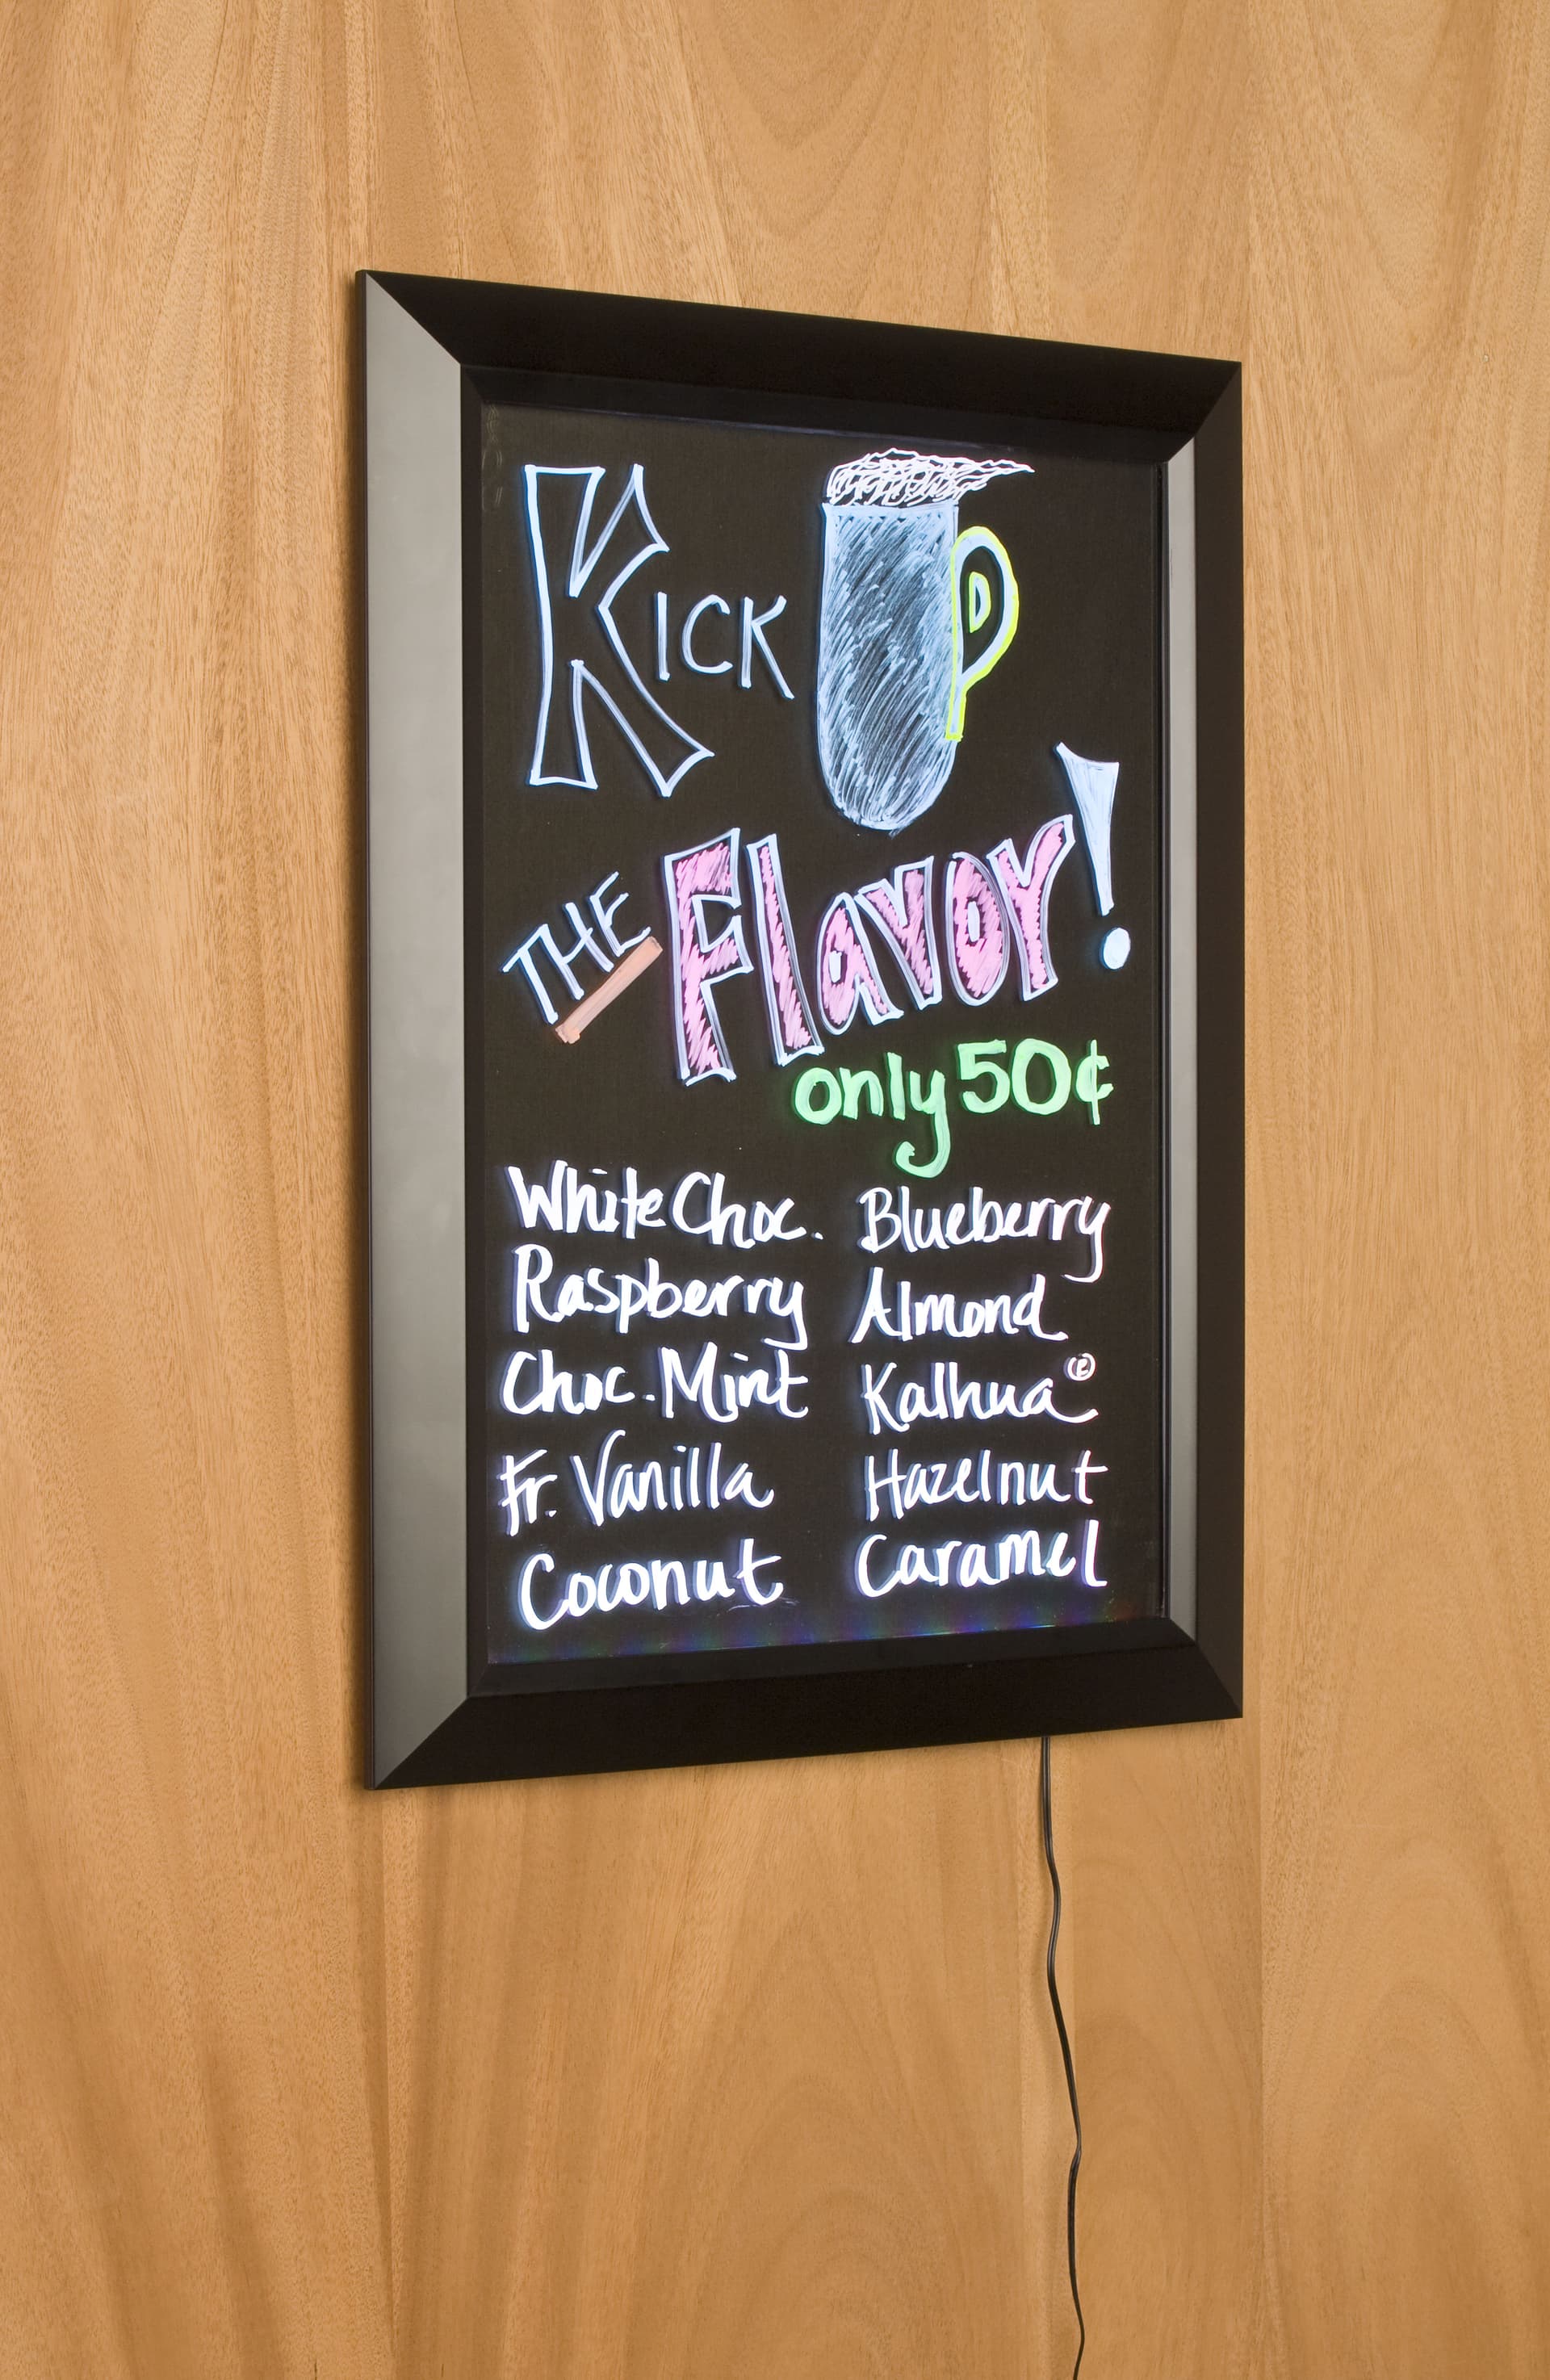 Kick UP
THE Flavor!
only 50¢
White Choc.
Raspberry
Choc. Mint
Fr. Vanilla
Coconut
Blueberry
Almond
Kalhua®
Hazelnut
Caramel